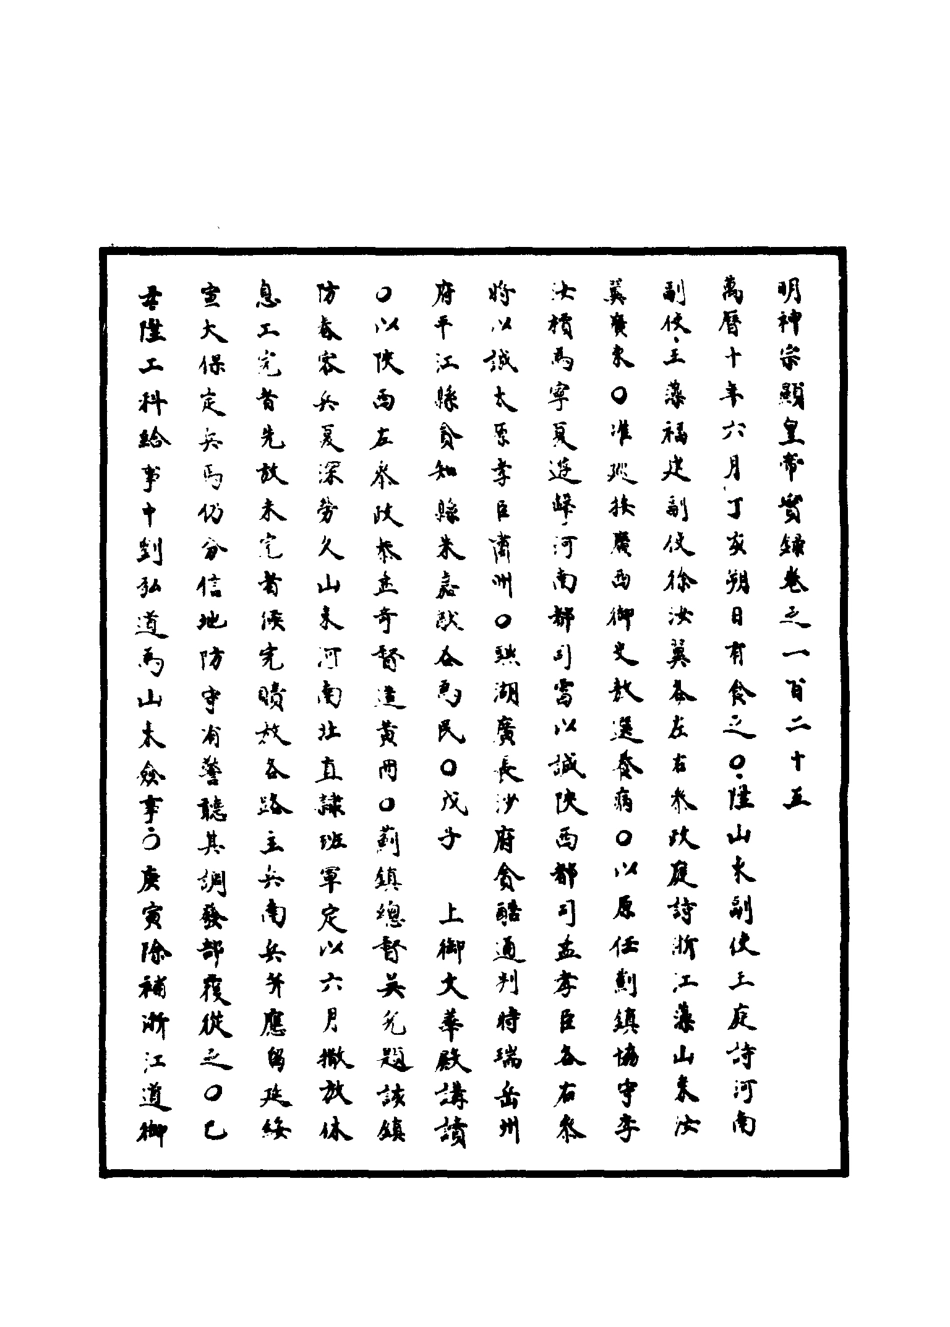 明神宗顯皇帝實錄卷之一百二十五
萬曆十年六月丁亥朔日有食之○陞山東副使王庭詩河南
副使王藻福建副使徐汝翼各左右參政庭詩浙江藻山東汝
翼廣東○准廵按廣西御史敖選養病○以原任薊鎮協守李
汝櫝為寧夏遊擊河南都司雷以諴陝西都司孟孝臣各右參
將以諴太原孝臣肅州○黜湖廣長沙府貪酷通判時瑞岳州
府平江縣貪知縣朱嘉猷各為民○戊子 上御文華殿講讀
○以陝西左參政栗在奇督造黃冊○薊鎮總督吳兌題該鎮
防春客兵夏深勞久山東河南北直隸班軍定以六月撤放休
息工完者先放未完者候完續放各路主兵南兵并應留延綏
宣大保定兵馬仍分信地防守有警聽其調發部覆從之○己
丑陞工科給事中劉弘道為山東僉事○庚寅除補浙江道御